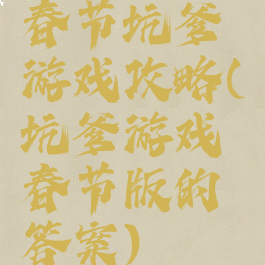 春节坑爹
游戏攻略(
坑爹游戏
春节版的
答案)